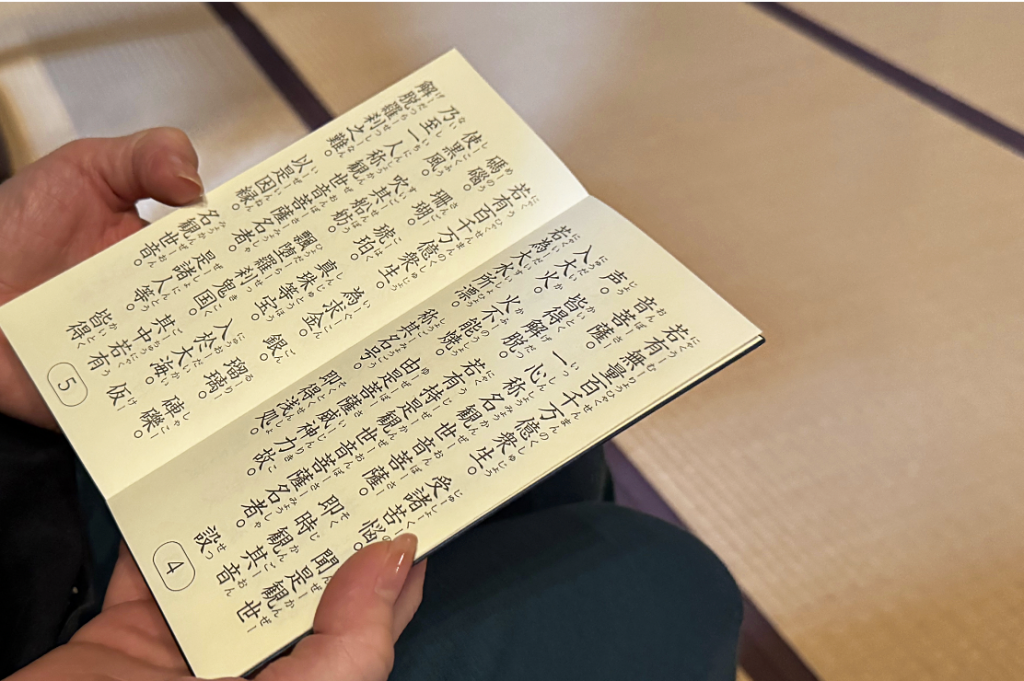 若有無量百千万億衆生。受諸苦悩。聞是観世
音菩薩。一心称名観世音菩薩。即時観其音
声。皆得解脱。若有持是観世音菩薩名者。設
入大火。火不能焼。由是菩薩威神力故。
若為大水所漂。称其名号。即得浅処。
4
若有百千万億衆生。為求金。銀。瑠璃。硨磲。
碼瑙。珊瑚。琥珀。真珠等宝。入於大海。仮
使黒風。吹其船舫。飄堕羅刹鬼国。其中若有
乃至一人。称観世音菩薩名者。是諸人等。皆得
解脱羅刹之難。以是因縁。名観世音。
5